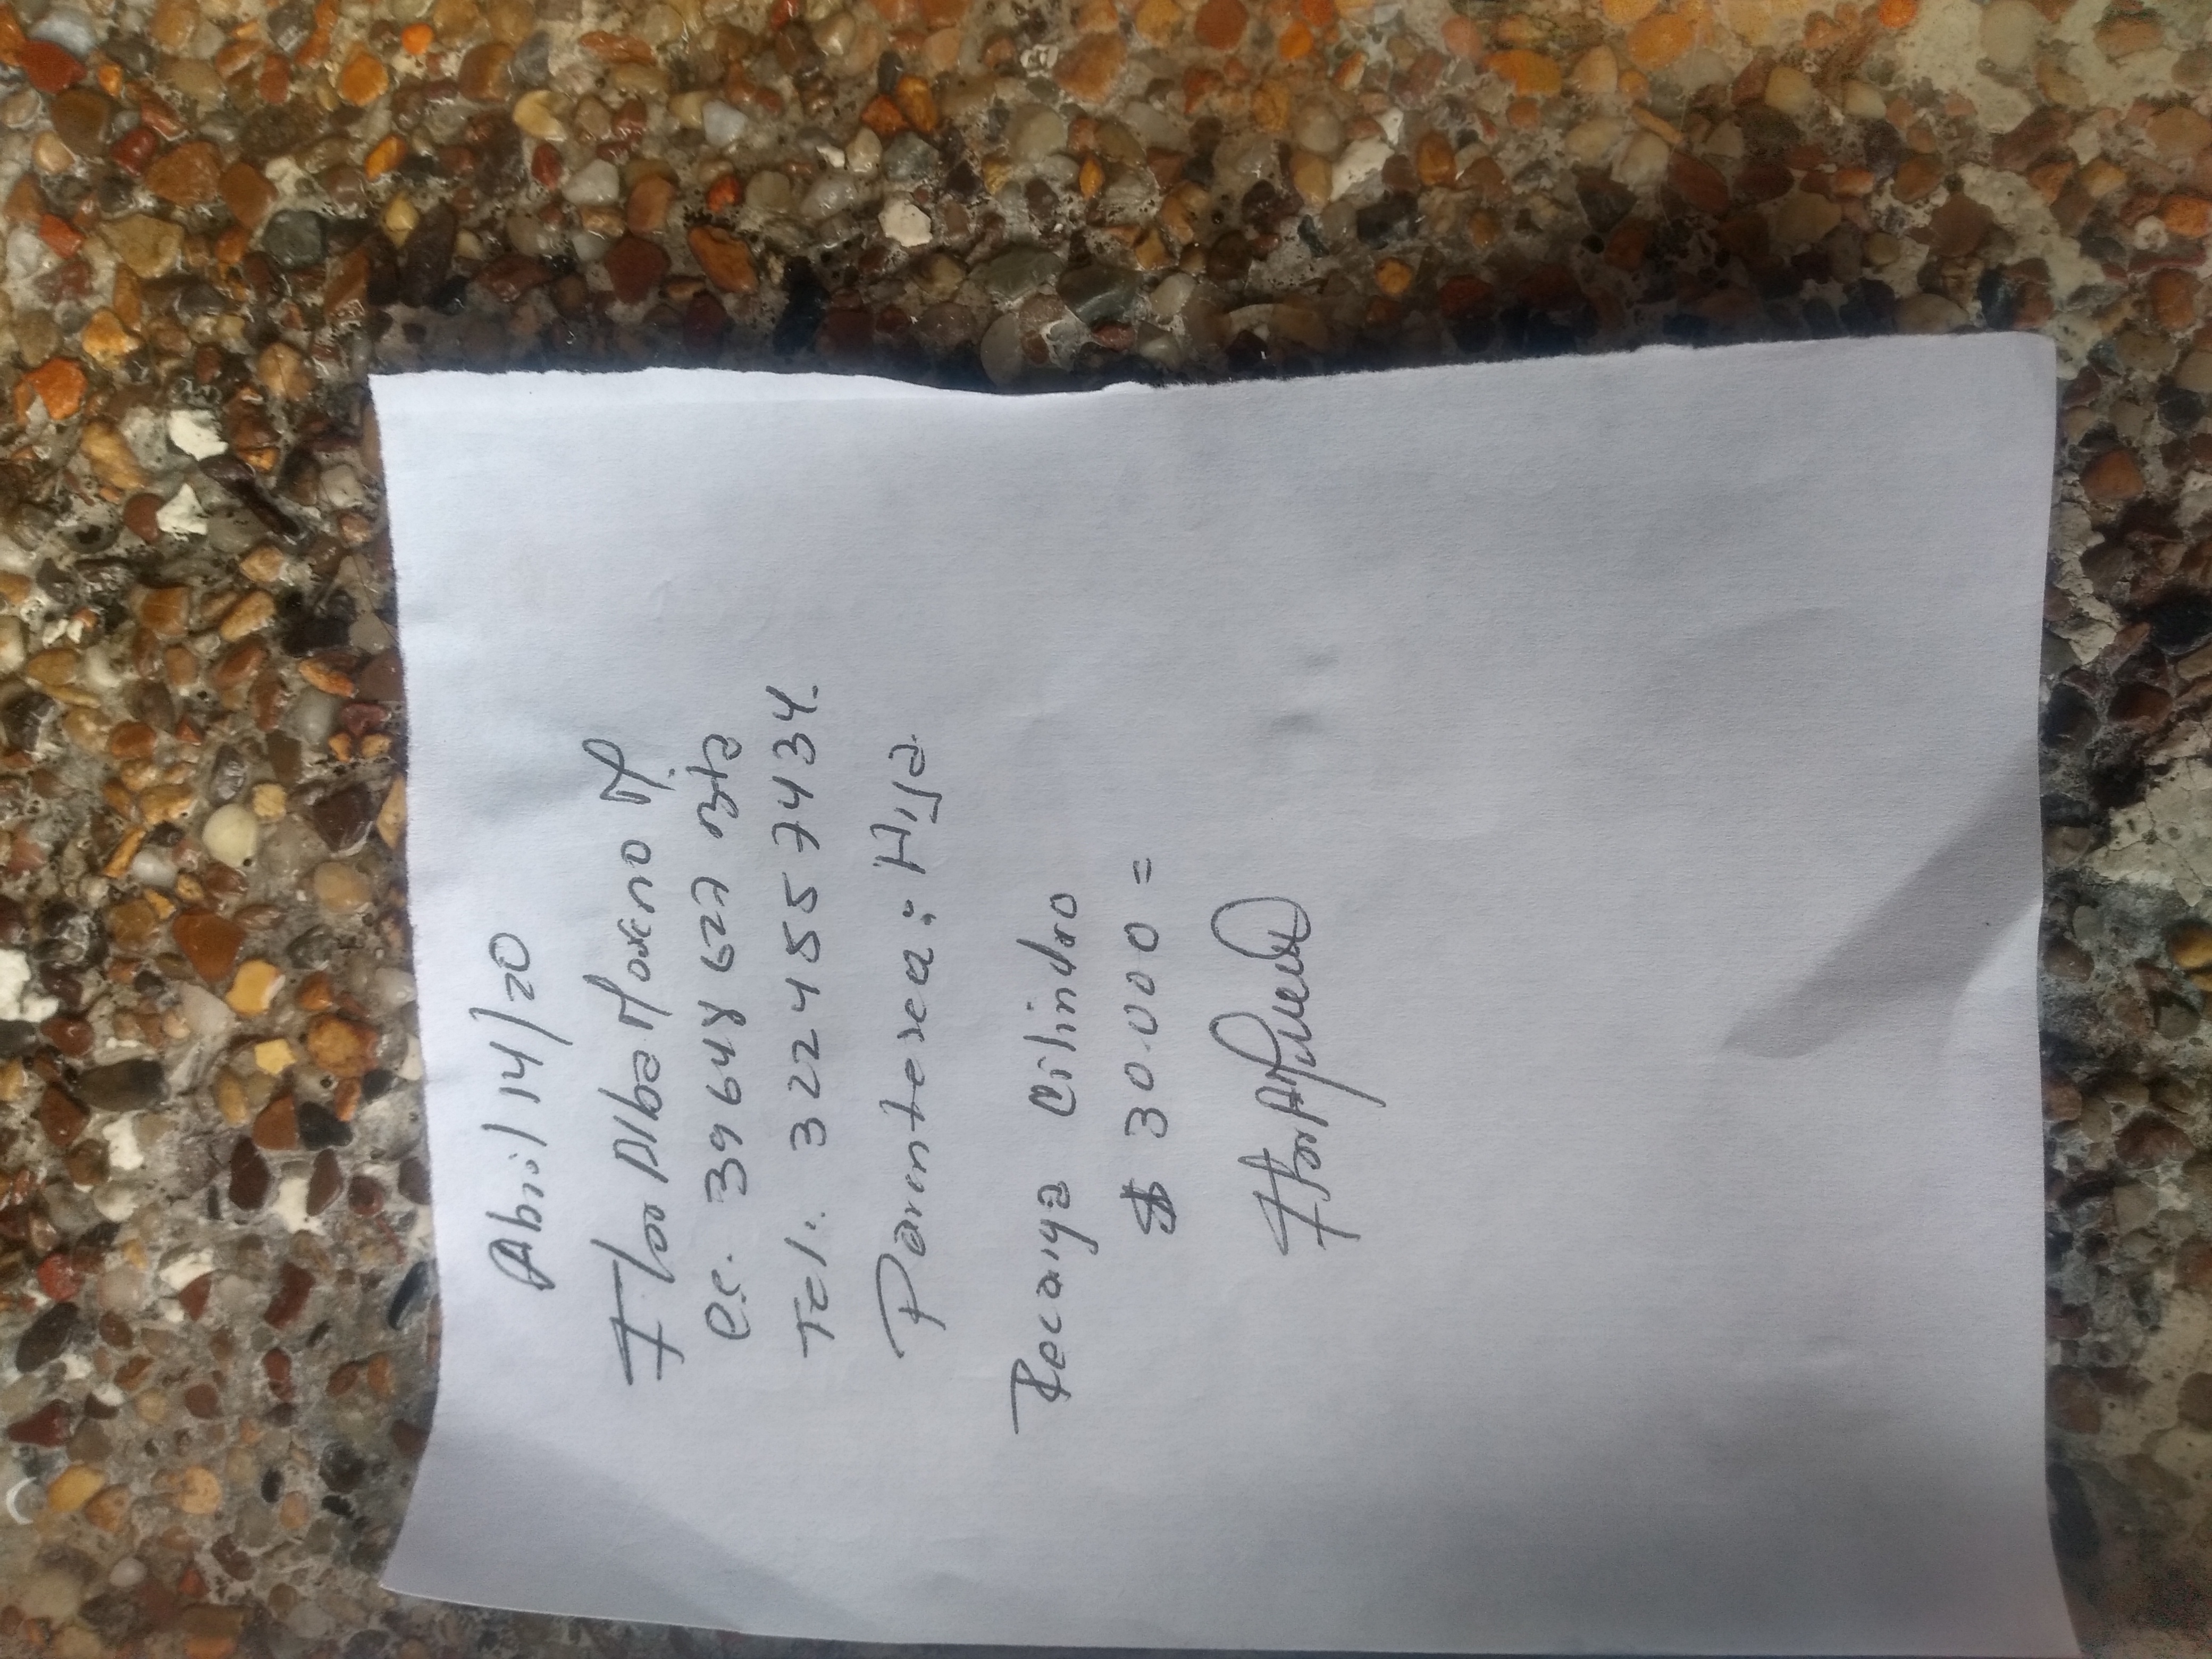 Abril 14/20
Flor Alba Moreno M
C.C. 39648627 Bta
Tel: 3224557434.
Parentesca: Hija
Recarga Cilindro
$ 30.000 =